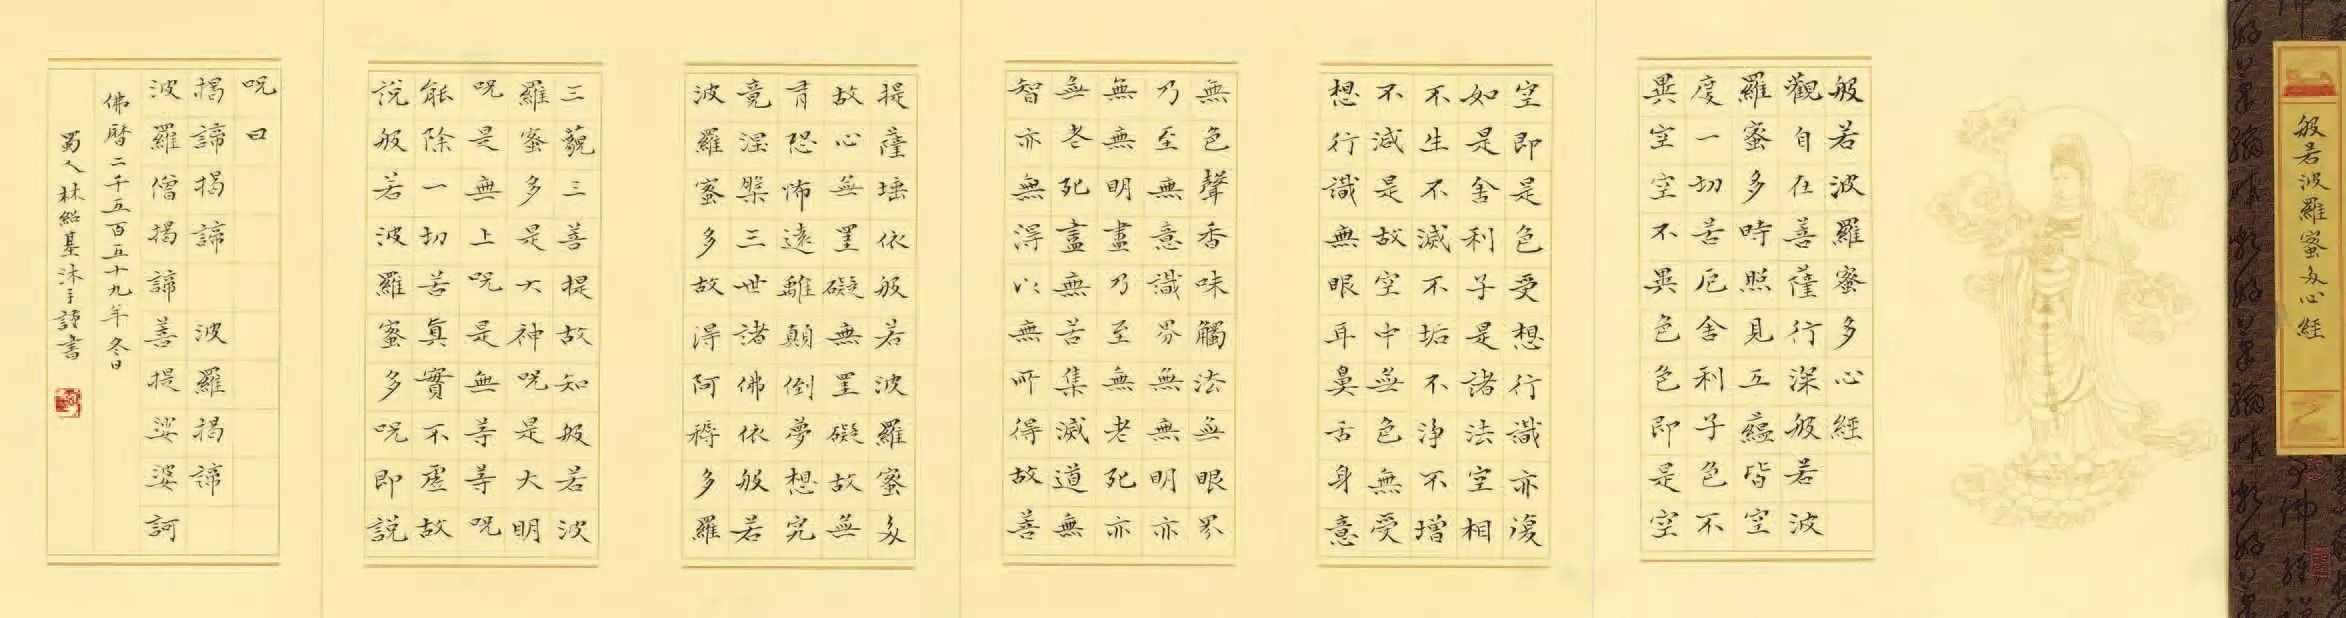 般若波羅蜜多心經
般若波羅蜜多心經
觀自在菩薩行深般若波
羅蜜多時照見五蘊皆空
度一切苦厄舍利子色不
異空空不異色色即是空
空即是色受想行識亦復
如是舍利子是諸法空相
不生不滅不垢不淨不增
不減是故空中無色無受
想行識無眼耳鼻舌身意
無色聲香味觸法無眼界
乃至無意識界無無明亦
無無明盡乃至無老死亦
無老死盡無苦集滅道無
智亦無得以無所得故菩
提薩埵依般若波羅蜜多
故心無罣礙無罣礙故無
有恐怖遠離顛倒夢想究
竟涅槃三世諸佛依般若
波羅蜜多故得阿耨多羅
三藐三菩提故知般若波
羅蜜多是大神呪是大明
呪是無上呪是無等等呪
能除一切苦真實不虛故
說般若波羅蜜多呪即說
呪曰
揭諦揭諦 波羅揭諦
波羅僧揭諦菩提娑婆訶
佛曆二千五百五十九年冬日
蜀人林紹基沐手謹書